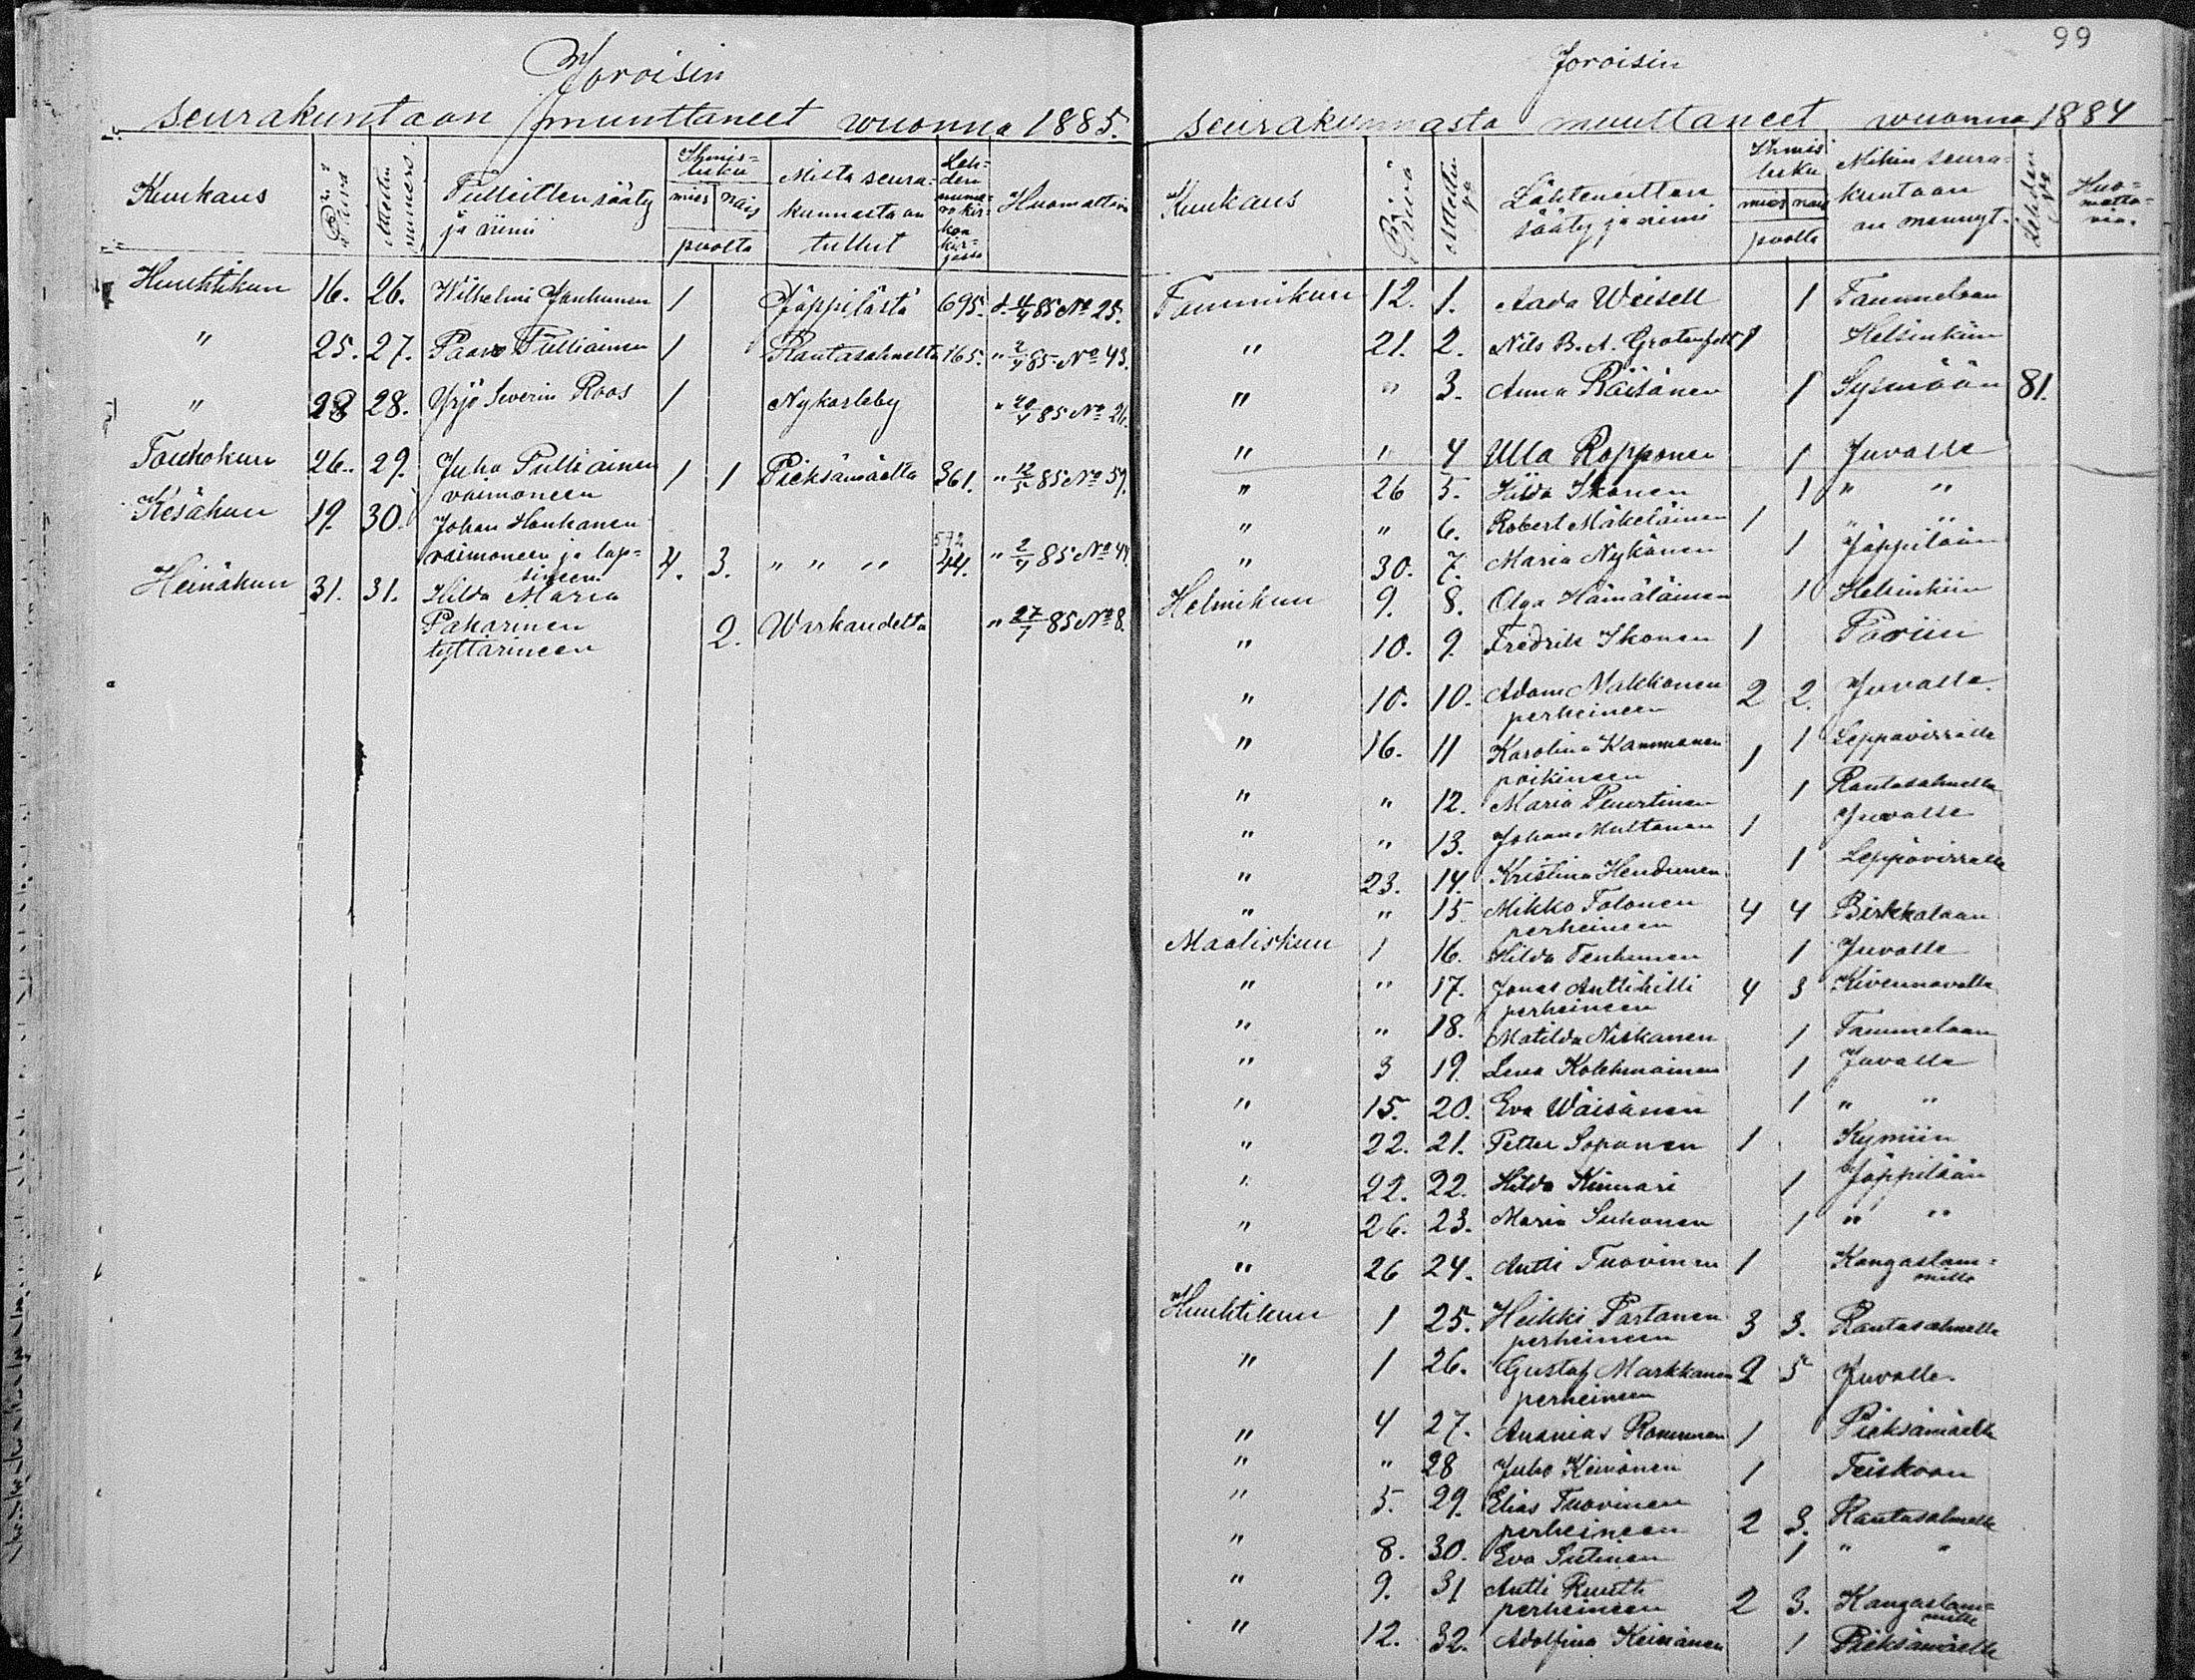 Joroisin
seurakuntaan muuttaneet wuonna 1885.
Kuukaus Päivä Attestin numero. Tulleitten sääty ja nimi Ihmisluku mies nais puolta Mistä seurakunnasta on tullut Lehden numero kirkonkirjassa Huomattavia
Huhtikuu 16. 26. Wilhelmi Janhunen 1 Jäppilästä 695. d. 4/4 85 No 25.
" 25. 27. Paavo Tulliainen 1 Rantasalmelta 165. " 2/4 85 No 43.
" 28 28. Yrjö Severin Roos 1 Nykarleby " 20/4 85 No 26.
Toukokuu 26. 29. Juho Pulliainen 1 1 Pieksämäeltä 361. " 12/5 85 No 59.
vaimoneen
Kesäkuu 19. 30. Johan Honkanen
vaimoneen ja lap= 4. 3. " " " 572 44. " 2/4 85 No 44.
sineen
Heinäkuu 31. 31. Hilda Maria
Pakarinen 2. Warkaudelta " 27/7 85 No 8.
tyttärineen
99
Joroisin
seurakunnasta muuttaneet wuonna 1884
Kuukaus Päivä Attestin No Lähteneitten sääty ja nimi Ihmisluku mies nais puolta Mihin seurakuntaan on mennyt. Lehden No Huomattavia.
Tammikuu 12. 1. Aada Weisell 1 Tammelaan
" 21. 2. Nils B. A. Grotenfelt 1 Helsinkiin
" " 3. Anna Räisänen 1 Sysmään 81.
" " 4 Ulla Ropponen 1 Juvalle
" 26 5. Hilda Ikonen 1 " "
" " 6. Robert Mäkeläinen 1 " "
" 30. 7. Maria Nykänen 1 Jäppilään
Helmikuu 9. 8. Olga Hämäläinen 1 Helsinkiin
" 10. 9. Fredrik Ikonen 1 Poriin
" 10. 10. Adam Makkonen 2 2. Juvalle.
perheineen
" 16. 11 Karolina Kammonen 1 1 Leppävirralle
poikineen
" " 12. Maria Penttinen 1 Rantasalmelle
" " 13. Johan Multanen 1 Juvalle
" 23. 14. Kristina Hendunen 1 Leppävirralle
" " 15. Mikko Tolonen 4 4 Birkkalaan
perheineen
Maaliskuu 1 16. Hilda Tenhunen 1 Juvalle
" " 17. Jonas Anttikilli 4 3 Kivennavalle
perheineen
" " 18. Matilda Niskanen 1 Tammelaan
" 3 19. Lena Kolehmainen 1 Juvalle
" 15. 20. Eva Wäisänen 1 " "
" 22. 21. Petter Soponen 1 Kymiin
" 22. 22. Hilda Kinnari 1 Jäppilään
" 26. 23. Maria Suhonen 1 " "
" 26 24. Antti Tuovinen 1 Kangaslam=
mille
Huhtikuu 1 25. Heikki Partanen 3 3. Rantasalmelle
perheineen
" 1 26. Gustaf Markkanen 2 5 Juvalle.
perheineen
" 4 27. Ananias Romunen 1 Pieksämäelle
" " 28 Juho Keinänen 1 Teiskoon
" 5. 29. Elias Tuovinen
perheineen 2 3. Rantasalmelle
" 8. 30. Eva Sutinen 1 " "
" 9. 31 Antti Ruuth
perheineen 2 3. Kangaslam=
mille
" 12. 32. Adolfina Keinänen 1 Pieksämäelle